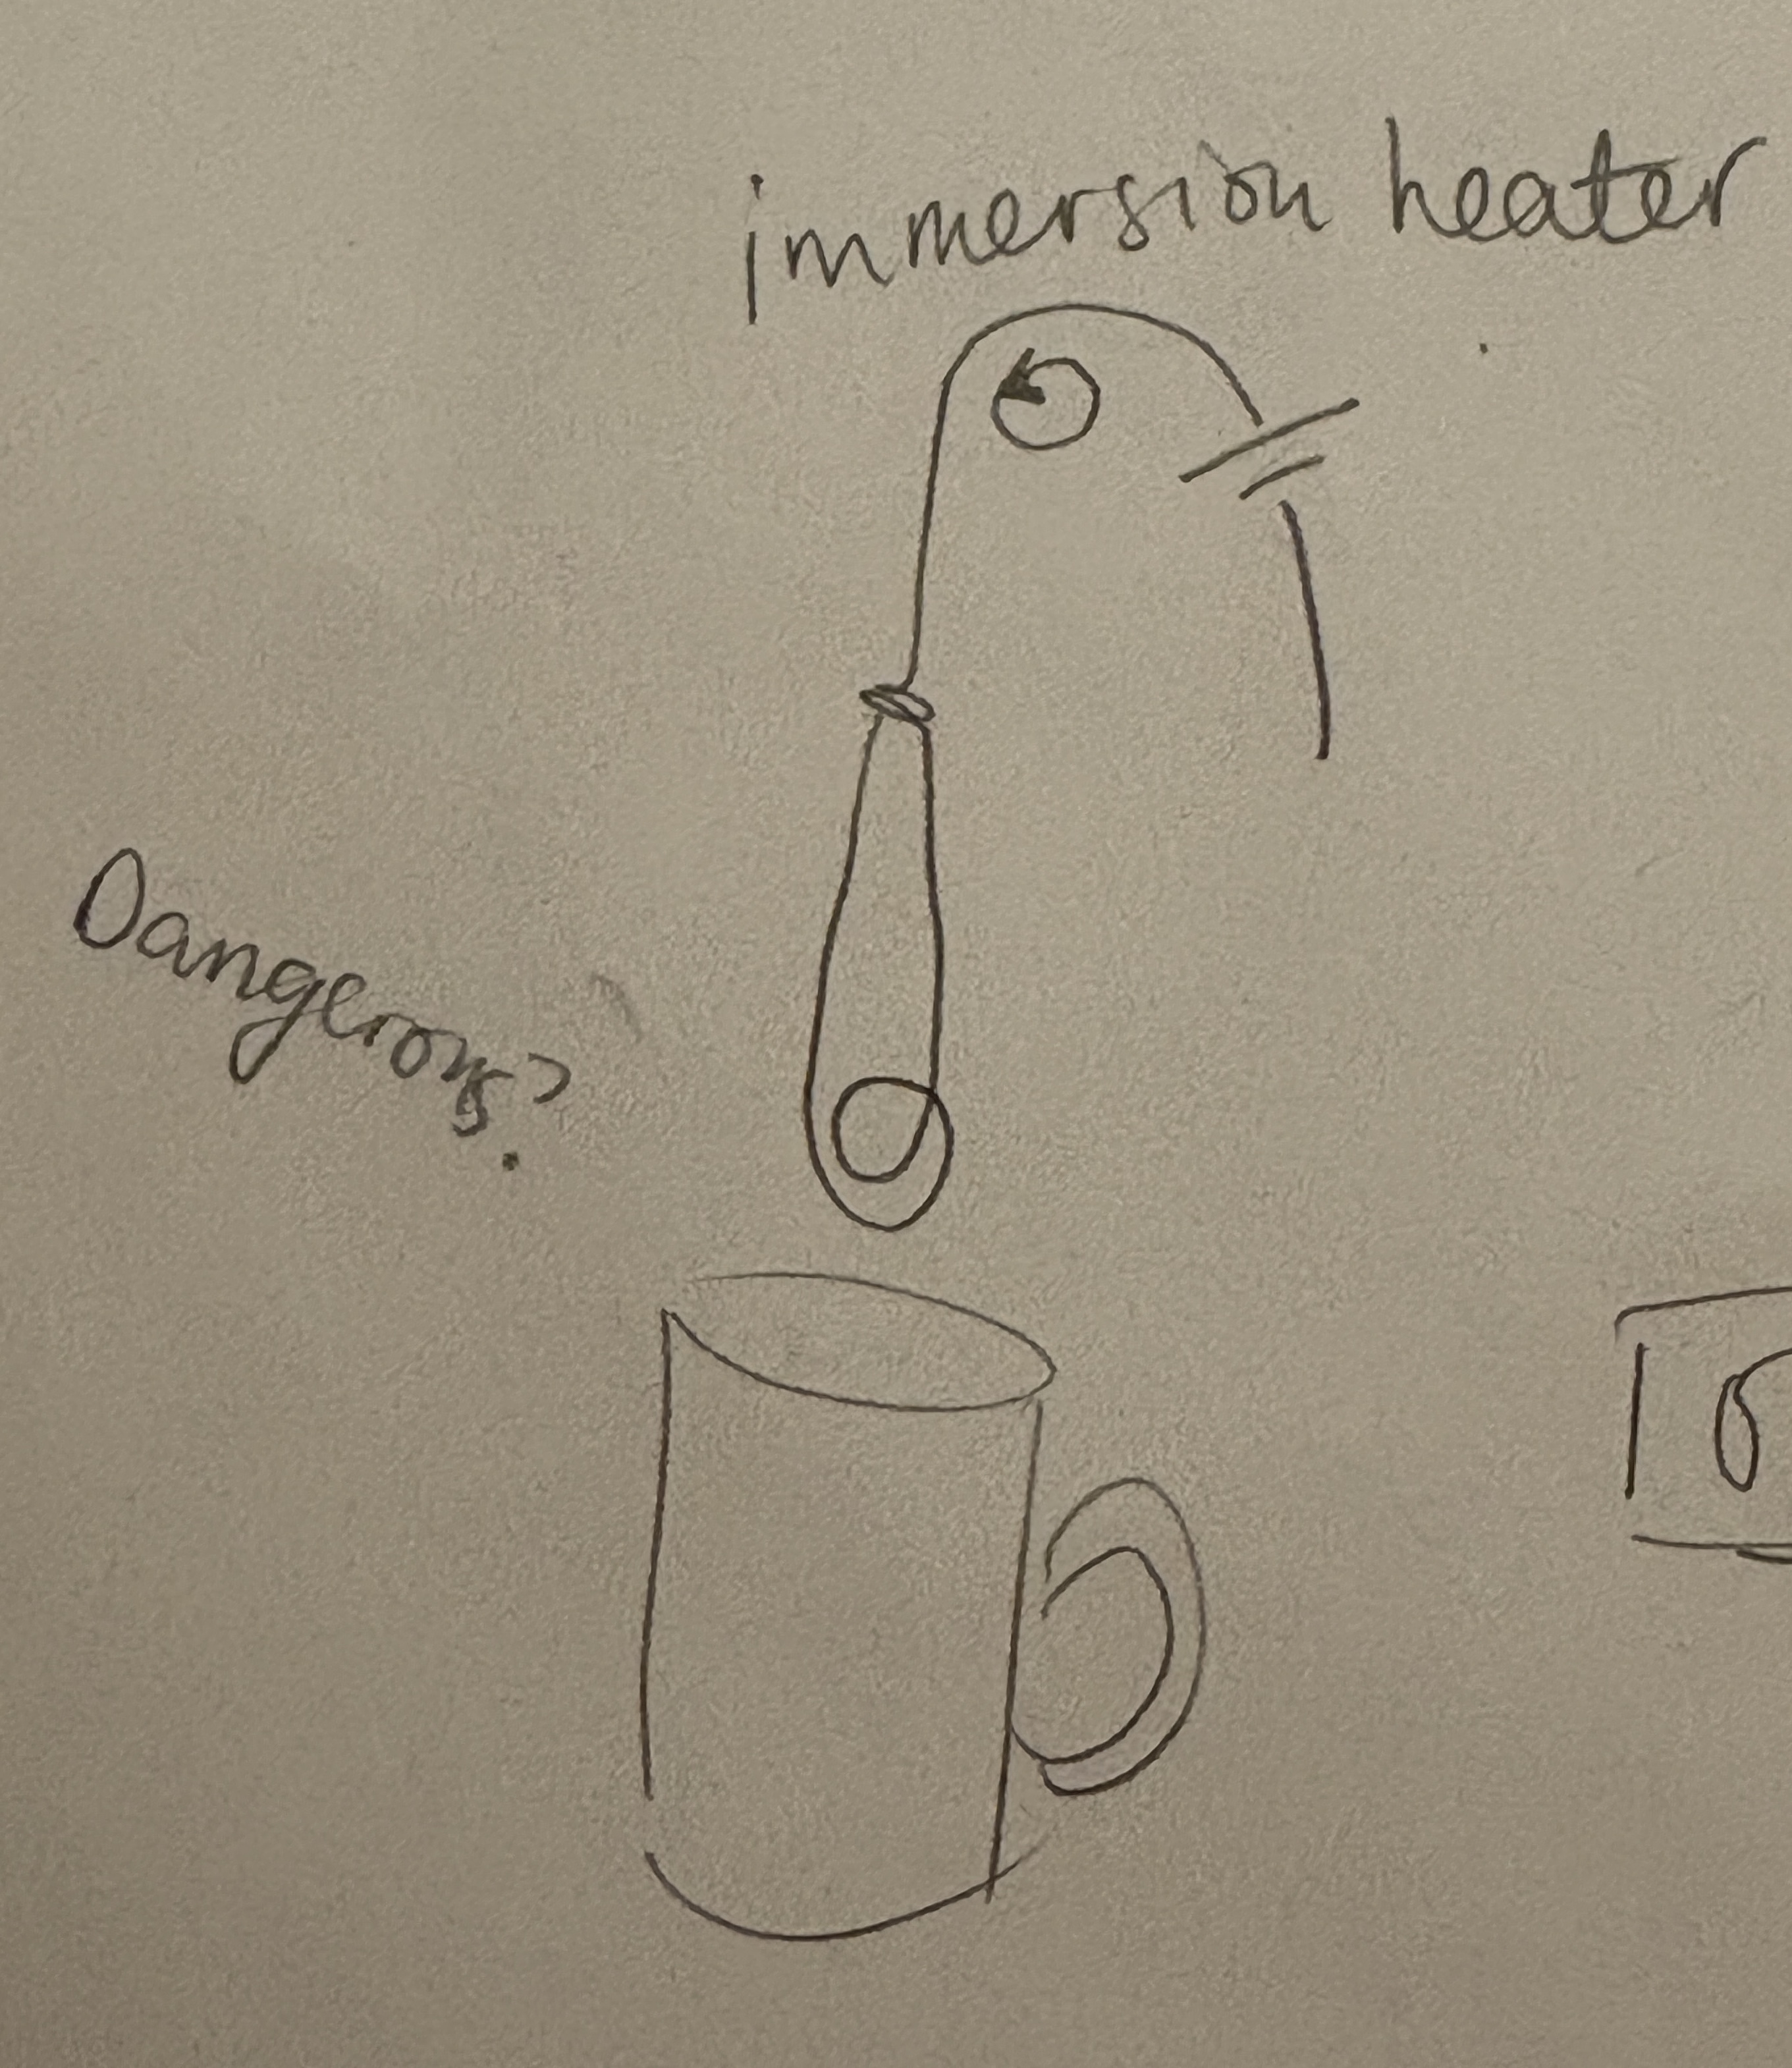 immersion heater
Dangerous?